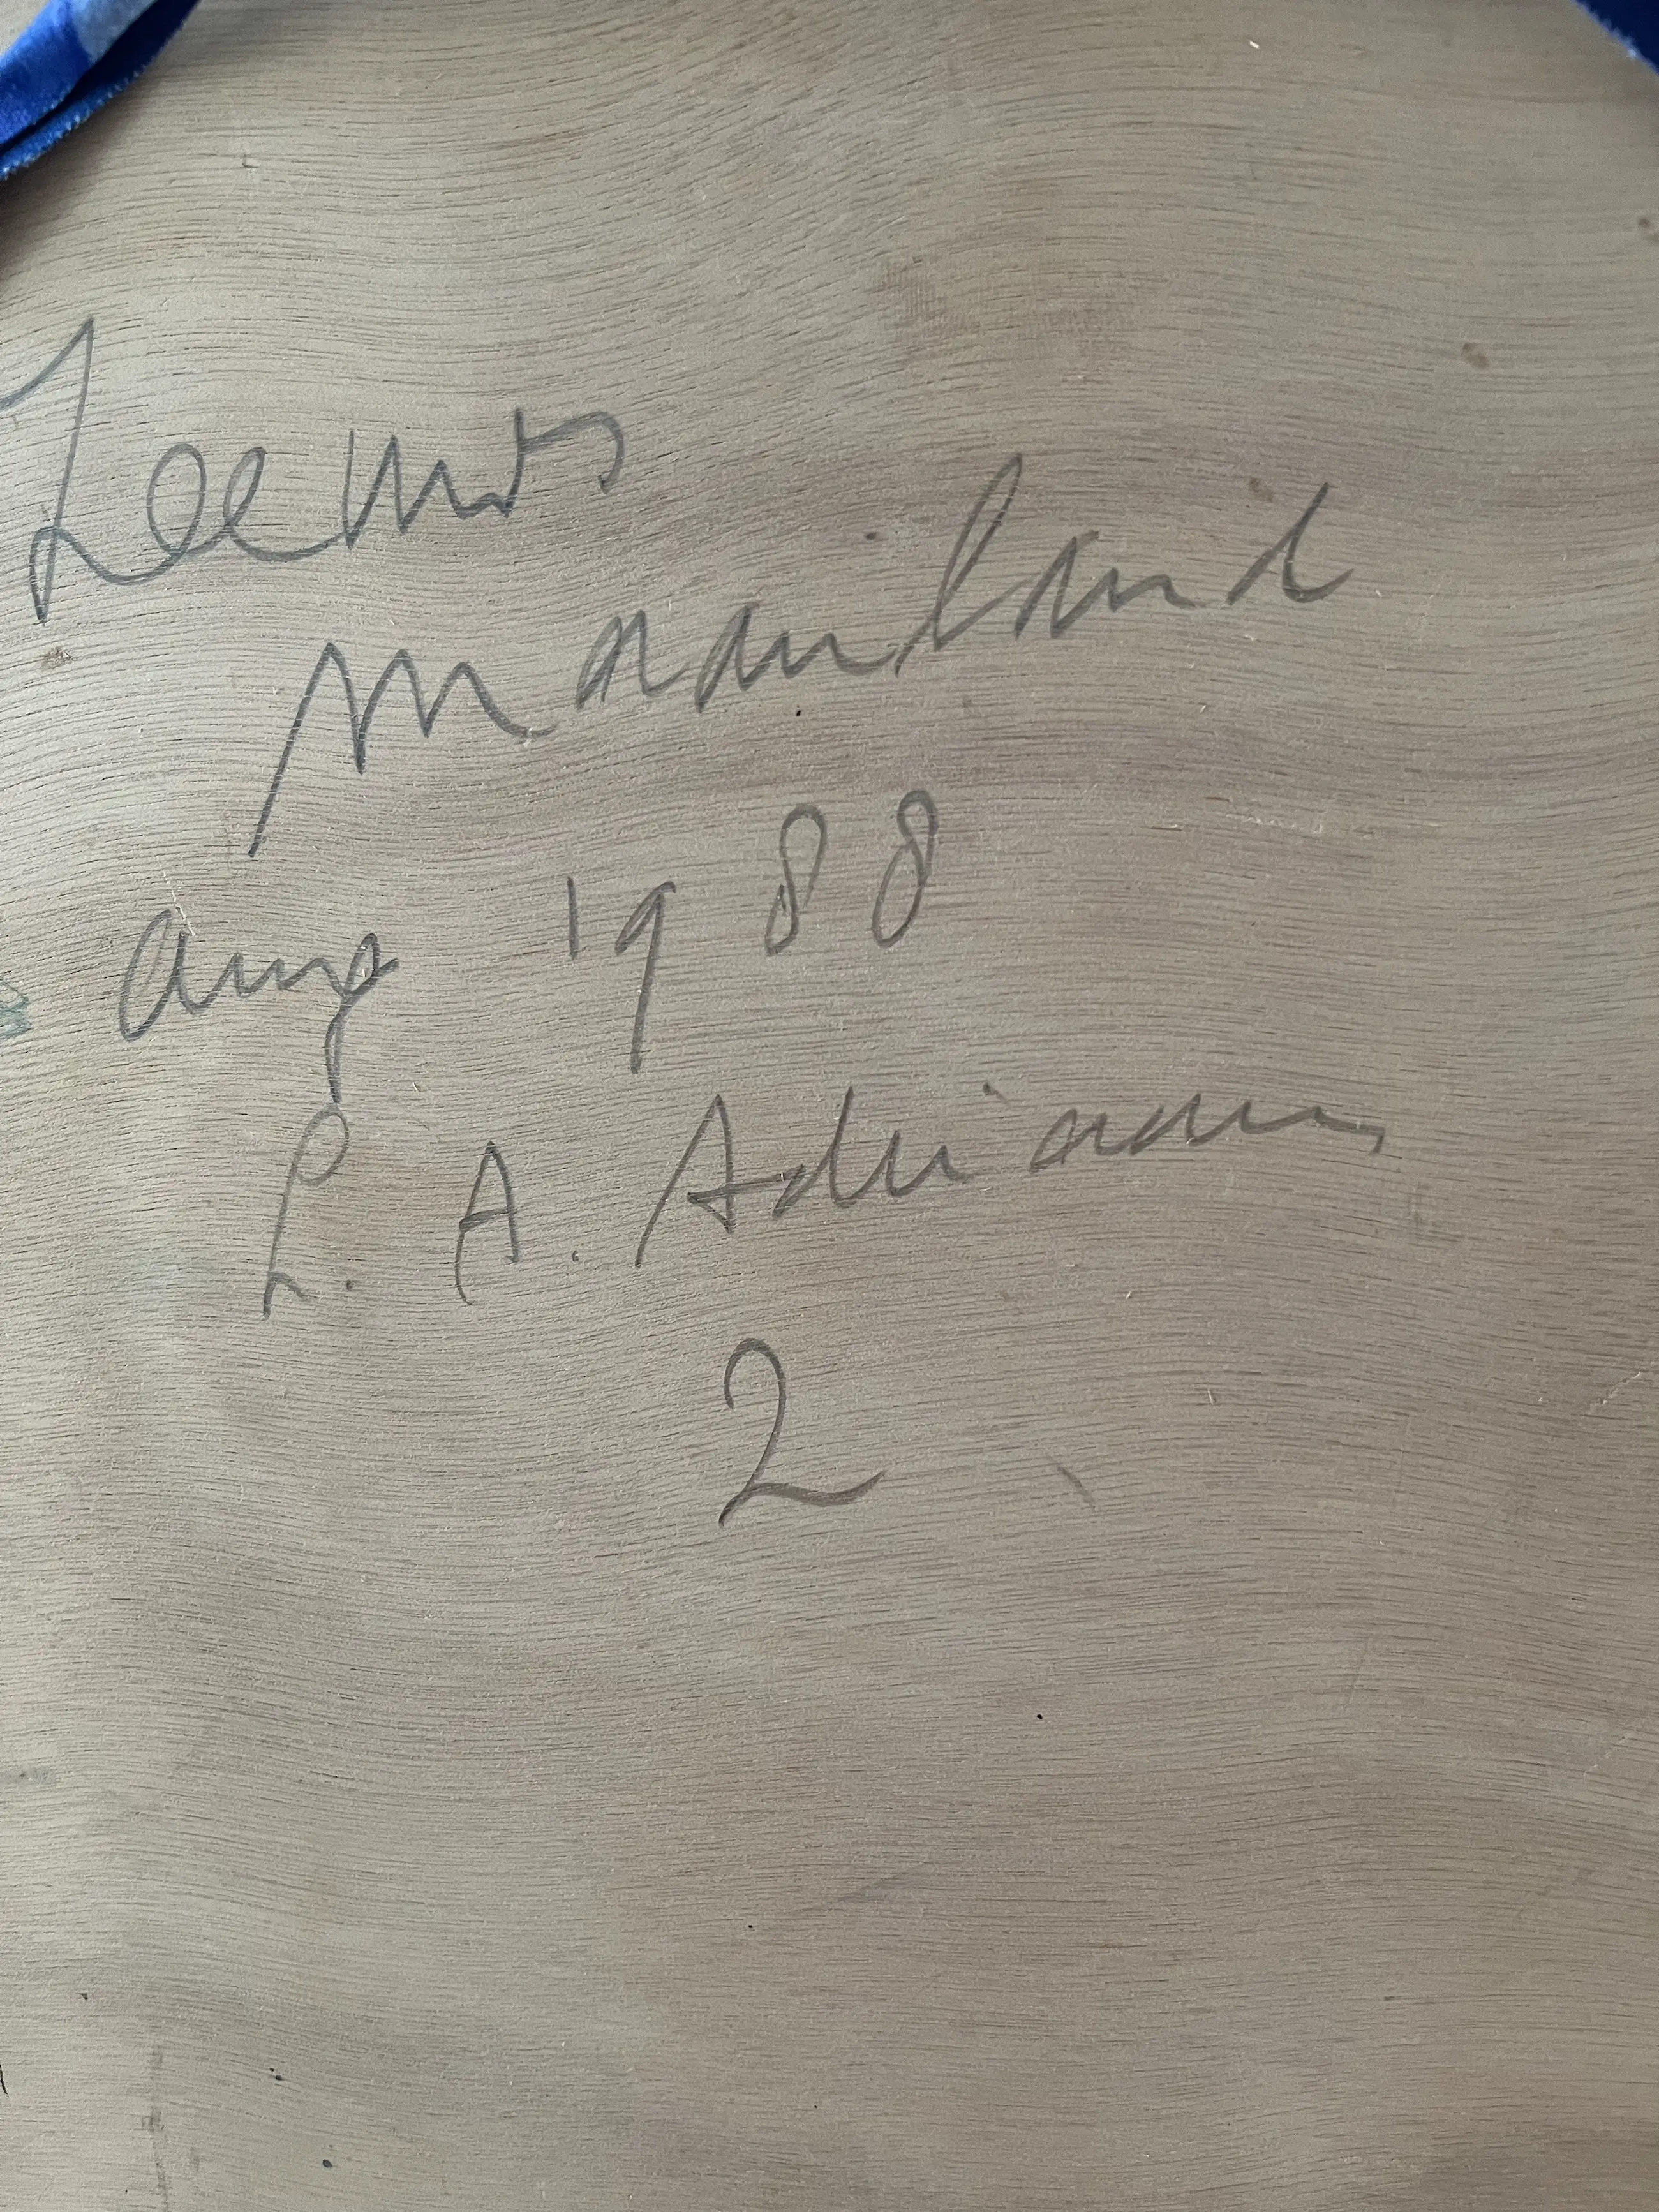 Zeeuws
Maanland
aug 1988
L. A. Adriaan
2